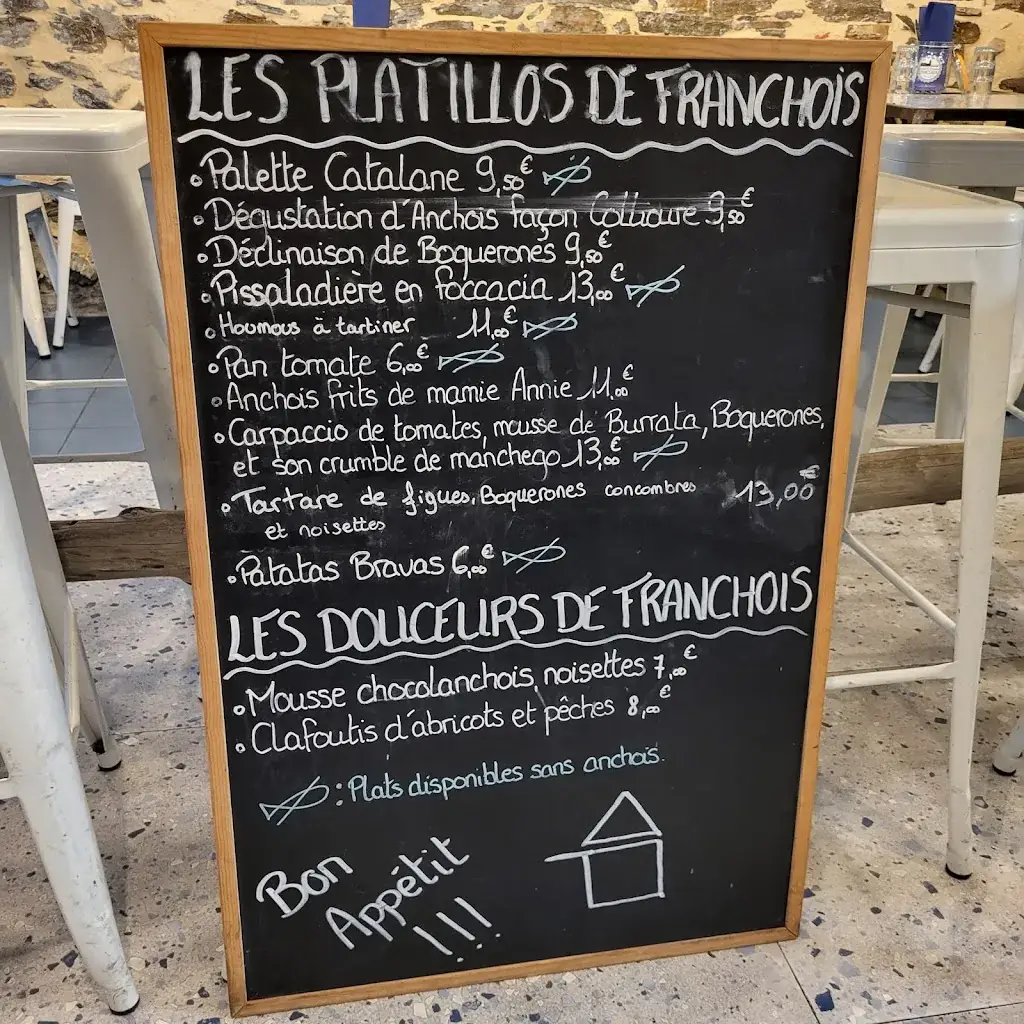 LES PLATILLOS DE FRANCHOIS
• Palette Catalane 9,50€
• Dégustation d'Anchois façon Collioure 9,50€
• Déclinaison de Boquerones 9,50€
• Pissaladière en foccacia 13,00€
• Houmous à tartiner 11,00€
• Pan tomate 6,00€
• Anchois frits de mamie Annie 11,00€
• Carpaccio de tomates, mousse de Burrata, Boquerones,
et son crumble de manchego 13,00€
• Tartare de figues, Boquerones concombres 13,00€
et noisettes
• Patatas Bravas 6,00€
LES DOUCEURS DE FRANCHOIS
• Mousse chocolanchois noisettes 7,00€
• Clafoutis d'abricots et pêches 8,00€
: Plats disponibles sans anchois.
Bon
Appétit
!!!